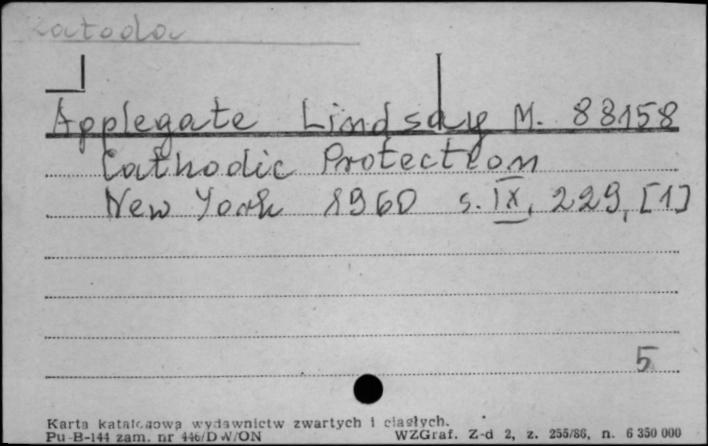 Katoda
Applegate Lindsay M. 88158
Cathodic Protection
New York 1960 s. IX, 229, [1]
5
Karta katalogowa wydawnictw zwartych i ciągłych.
Pu-B-144 zam. nr 446/DW/ON WZGraf. Z-d 2, z. 255/86, n. 6 350 000